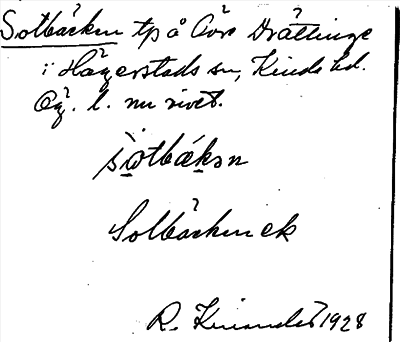 Solbäcken tp på Övre Drättinge
i Hägerstads sn, Kinda hd.
Ög. l. nu rivet.
Solbäcken ek
R. Kinander 1928